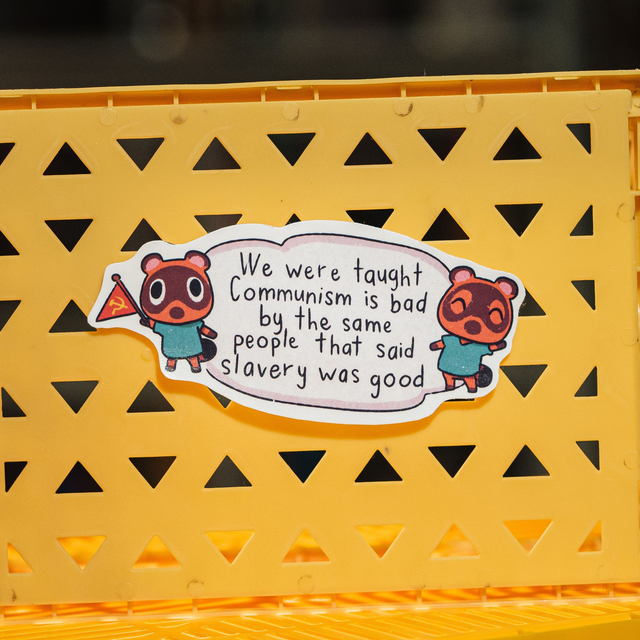 We were taught
Communism is bad
by the same
people that said
slavery was good